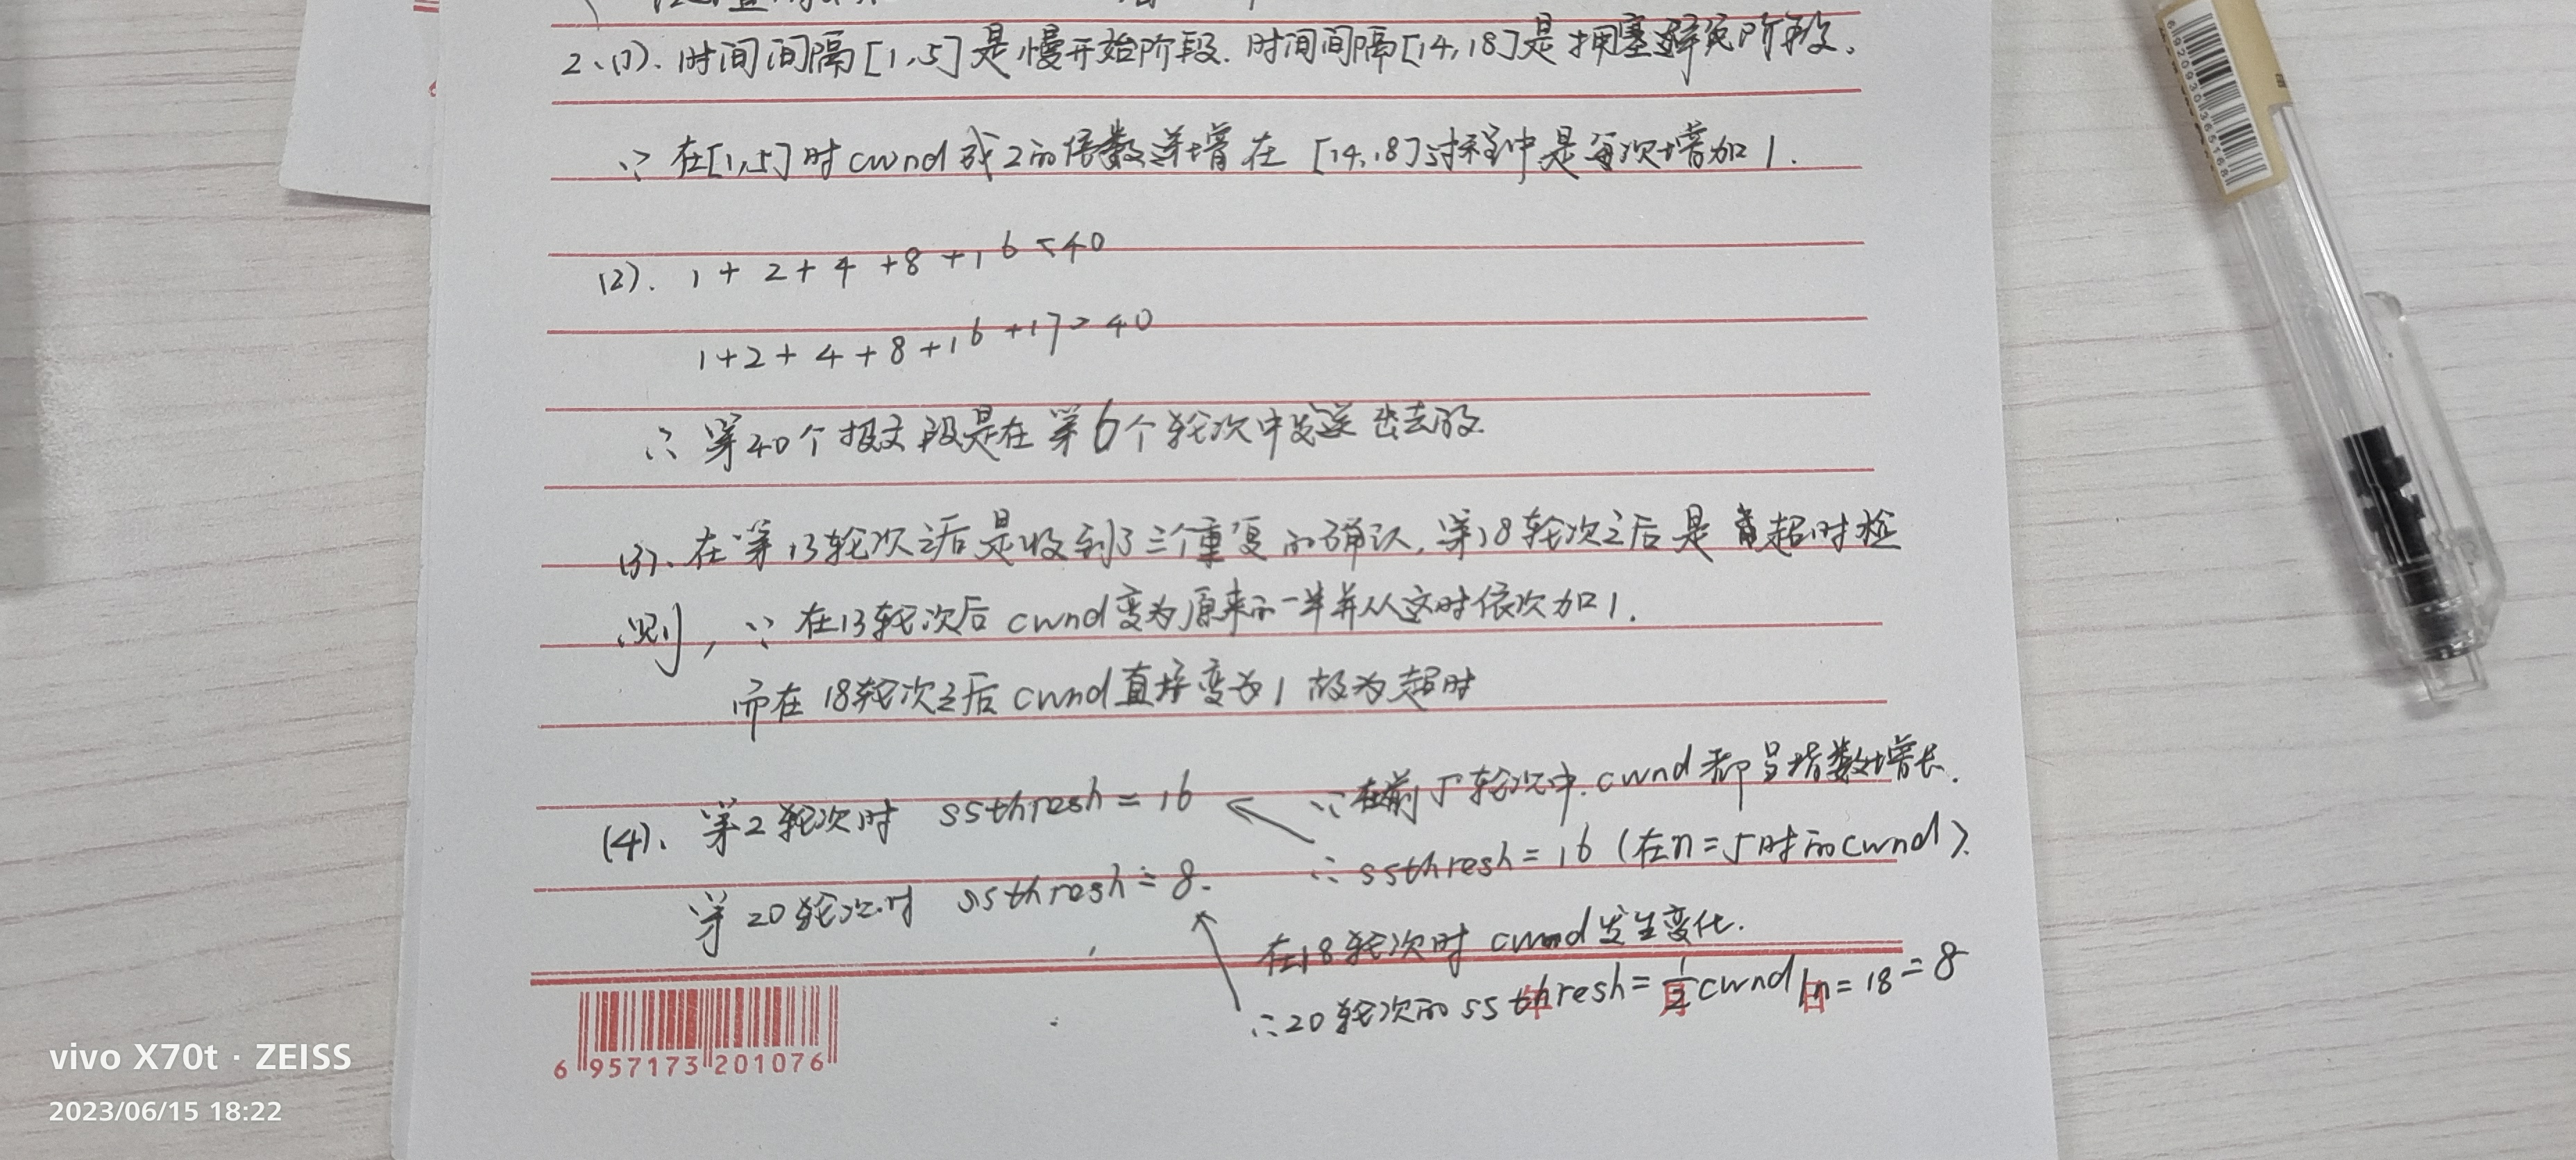 2、(1)、时间间隔[1,5]是慢开始阶段. 时间间隔[14,18]是拥塞避免阶段。
∵ 在[1,5]时cwnd成2的倍数递增在 [14,18]过程中是每次增加1.
(2). 1+2+4+8+16<40
1+2+4+8+16+17>40
∴ 第40个报文段是在第6个轮次中发送出去的.
(3)、在第13轮次之后是收到了三个重复的确认, 第18轮次之后是 超时检
测, ∵ 在13轮次后 cwnd变为原来的一半并从这时依次加1.
而在18轮次之后cwnd直接变为1 故为超时
(4)、第2轮次时 ssthresh=16
∵在前5轮次中.cwnd都呈指数增长.
∴ssthresh=16(在n=5时的cwnd).
第20轮次时 ssthresh=8.
在18轮次时 cwnd发生变化.
∴20轮次的ssthresh=1/2cwnd|n=18=8
年 月 日
6 957173 201076
vivo X70t · ZEISS
2023/06/15 18:22